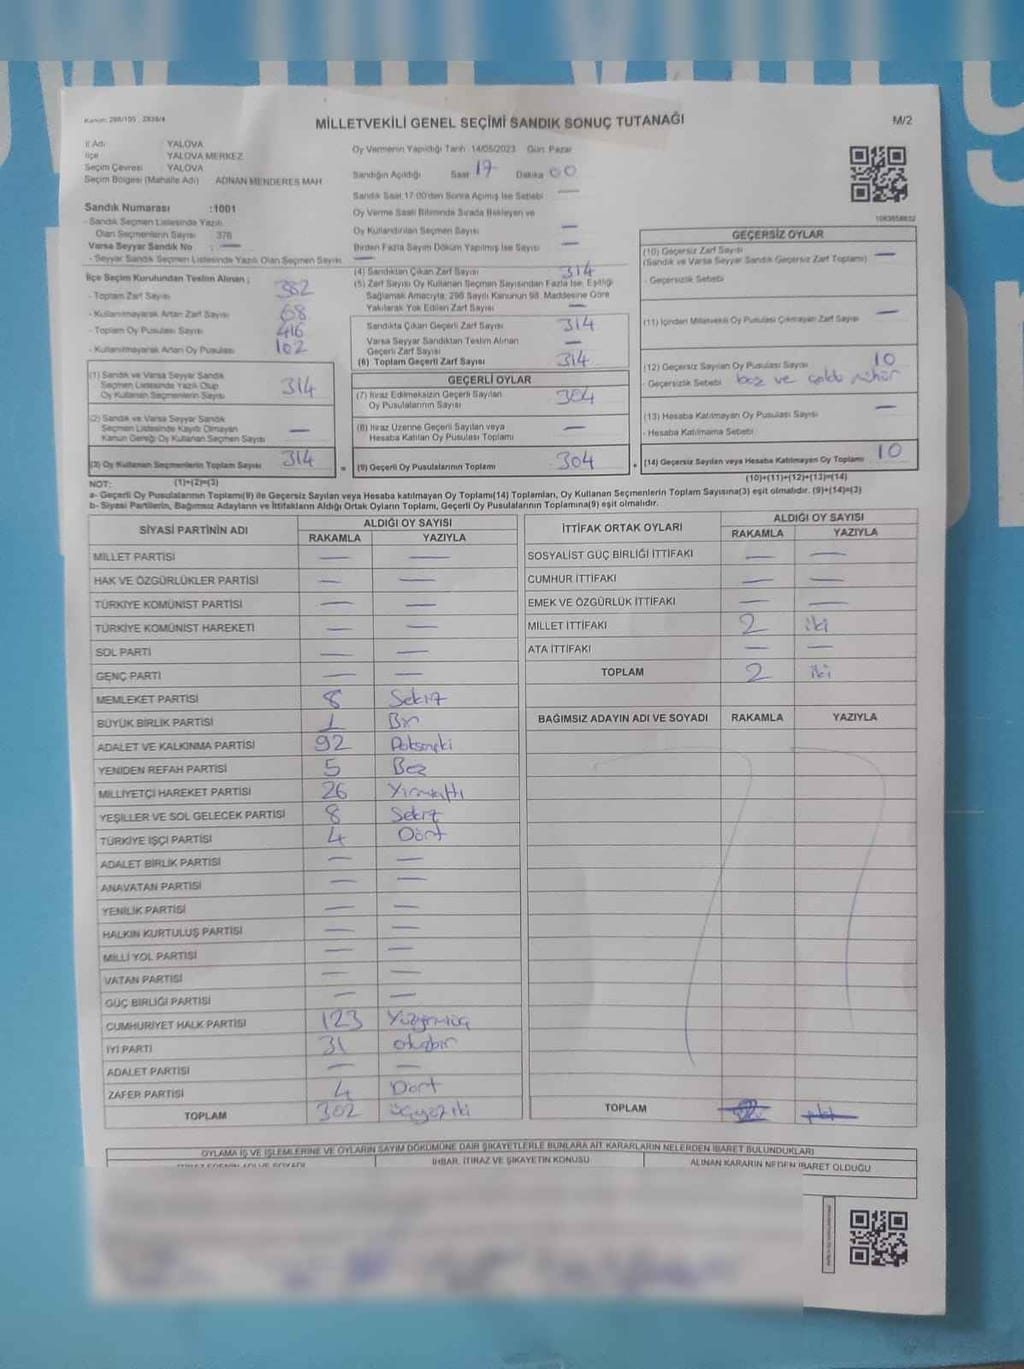 Kanun: 298/105 , 2839/4
MİLLETVEKİLİ GENEL SEÇİMİ SANDIK SONUÇ TUTANAĞI
M/2
İl Adı YALOVA
İlçe YALOVA MERKEZ
Seçim Çevresi YALOVA
Seçim Bölgesi (Mahalle Adı) ADNAN MENDERES MAH
Sandık Numarası :1001
- Sandık Seçmen Listesinde Yazılı
Olan Seçmenlerin Sayısı 376
Varsa Seyyar Sandık No : —
- Seyyar Sandık Seçmen Listesinde Yazılı Olan Seçmen Sayısı —
İlçe Seçim Kurulundan Teslim Alınan ;
- Toplam Zarf Sayısı 382
- Kullanılmayarak Artan Zarf Sayısı 68
- Toplam Oy Pusulası Sayısı 416
- Kullanılmayarak Artan Oy Pusulası 102
(1) Sandık ve Varsa Seyyar Sandık
Seçmen Listesinde Yazılı Olup
Oy Kullanan Seçmenlerin Sayısı 314
(2) Sandık ve Varsa Seyyar Sandık
Seçmen Listesinde Kayıtlı Olmayan
Kanun Gereği Oy Kullanan Seçmen Sayısı —
(3) Oy Kullanan Seçmenlerin Toplam Sayısı 314
Oy Vermenin Yapıldığı Tarih 14/05/2023 Gün: Pazar
Sandığın Açıldığı Saat 17 Dakika 00
Sandık Saat 17:00'den Sonra Açılmış İse Sebebi —
Oy Verme Saati Bitiminde Sırada Bekleyen ve
Oy Kullandırılan Seçmen Sayısı —
Birden Fazla Sayım Döküm Yapılmış İse Sayısı —
(4) Sandıktan Çıkan Zarf Sayısı 314
(5) Zarf Sayısı Oy Kullanan Seçmen Sayısından Fazla İse, Eşitliği
Sağlamak Amacıyla, 298 Sayılı Kanunun 98. Maddesine Göre
Yakılarak Yok Edilen Zarf Sayısı —
Sandıkta Çıkan Geçerli Zarf Sayısı 314
Varsa Seyyar Sandıktan Teslim Alınan
Geçerli Zarf Sayısı —
(6) Toplam Geçerli Zarf Sayısı 314
GEÇERLİ OYLAR
(7) İtiraz Edilmeksizin Geçerli Sayılan
Oy Pusulalarının Sayısı 304
(8) İtiraz Üzerine Geçerli Sayılan veya
Hesaba Katılan Oy Pusulası Toplamı —
= (9) Geçerli Oy Pusulalarının Toplamı 304
1093858832
GEÇERSİZ OYLAR
(10) Geçersiz Zarf Sayısı
(Sandık ve Varsa Seyyar Sandık Geçersiz Zarf Toplamı) —
- Geçersizlik Sebebi
(11) İçinden Milletvekili Oy Pusulası Çıkmayan Zarf Sayısı —
(12) Geçersiz Sayılan Oy Pusulası Sayısı 10
- Geçersizlik Sebebi boş ve çoklu mühür
(13) Hesaba Katılmayan Oy Pusulası Sayısı —
- Hesaba Katılmama Sebebi
+ (14) Geçersiz Sayılan veya Hesaba Katılmayan Oy Toplamı 10
NOT: (1)+(2)=(3)
(10)+(11)+(12)+(13)=(14)
a- Geçerli Oy Pusulalarının Toplamı(9) ile Geçersiz Sayılan veya Hesaba katılmayan Oy Toplamı(14) Toplamları, Oy Kullanan Seçmenlerin Toplam Sayısına(3) eşit olmalıdır. (9)+(14)=(3)
b- Siyasi Partilerin, Bağımsız Adayların ve İttifakların Aldığı Ortak Oyların Toplamı, Geçerli Oy Pusulalarının Toplamına(9) eşit olmalıdır.
SİYASİ PARTİNİN ADI ALDIĞI OY SAYISI
RAKAMLA YAZIYLA
MİLLET PARTİSİ — —
HAK VE ÖZGÜRLÜKLER PARTİSİ — —
TÜRKİYE KOMÜNİST PARTİSİ — —
TÜRKİYE KOMÜNİST HAREKETİ — —
SOL PARTİ — —
GENÇ PARTİ — —
MEMLEKET PARTİSİ 8 Sekiz
BÜYÜK BİRLİK PARTİSİ 1 Bir
ADALET VE KALKINMA PARTİSİ 92 Doksaniki
YENİDEN REFAH PARTİSİ 5 Beş
MİLLİYETÇİ HAREKET PARTİSİ 26 Yirmialtı
YEŞİLLER VE SOL GELECEK PARTİSİ 8 Sekiz
TÜRKİYE İŞÇİ PARTİSİ 4 Dört
ADALET BİRLİK PARTİSİ — —
ANAVATAN PARTİSİ — —
YENİLİK PARTİSİ — —
HALKIN KURTULUŞ PARTİSİ — —
MİLLİ YOL PARTİSİ — —
VATAN PARTİSİ — —
GÜÇ BİRLİĞİ PARTİSİ — —
CUMHURİYET HALK PARTİSİ 123 Yüzyirmiüç
İYİ PARTİ 31 otuzbir
ADALET PARTİSİ — —
ZAFER PARTİSİ 4 Dört
TOPLAM 302 üçyüziki
İTTİFAK ORTAK OYLARI ALDIĞI OY SAYISI
RAKAMLA YAZIYLA
SOSYALİST GÜÇ BİRLİĞİ İTTİFAKI — —
CUMHUR İTTİFAKI — —
EMEK VE ÖZGÜRLÜK İTTİFAKI — —
MİLLET İTTİFAKI 2 iki
ATA İTTİFAKI — —
TOPLAM 2 iki
BAĞIMSIZ ADAYIN ADI VE SOYADI RAKAMLA YAZIYLA
TOPLAM
OYLAMA İŞ VE İŞLEMLERİNE VE OYLARIN SAYIM DÖKÜMÜNE DAİR ŞİKAYETLERLE BUNLARA AİT KARARLARIN NELERDEN İBARET BULUNDUKLARI
İHBAR, İTİRAZ VE ŞİKAYETİN KONUSU
ALINAN KARARIN NEDEN İBARET OLDUĞU